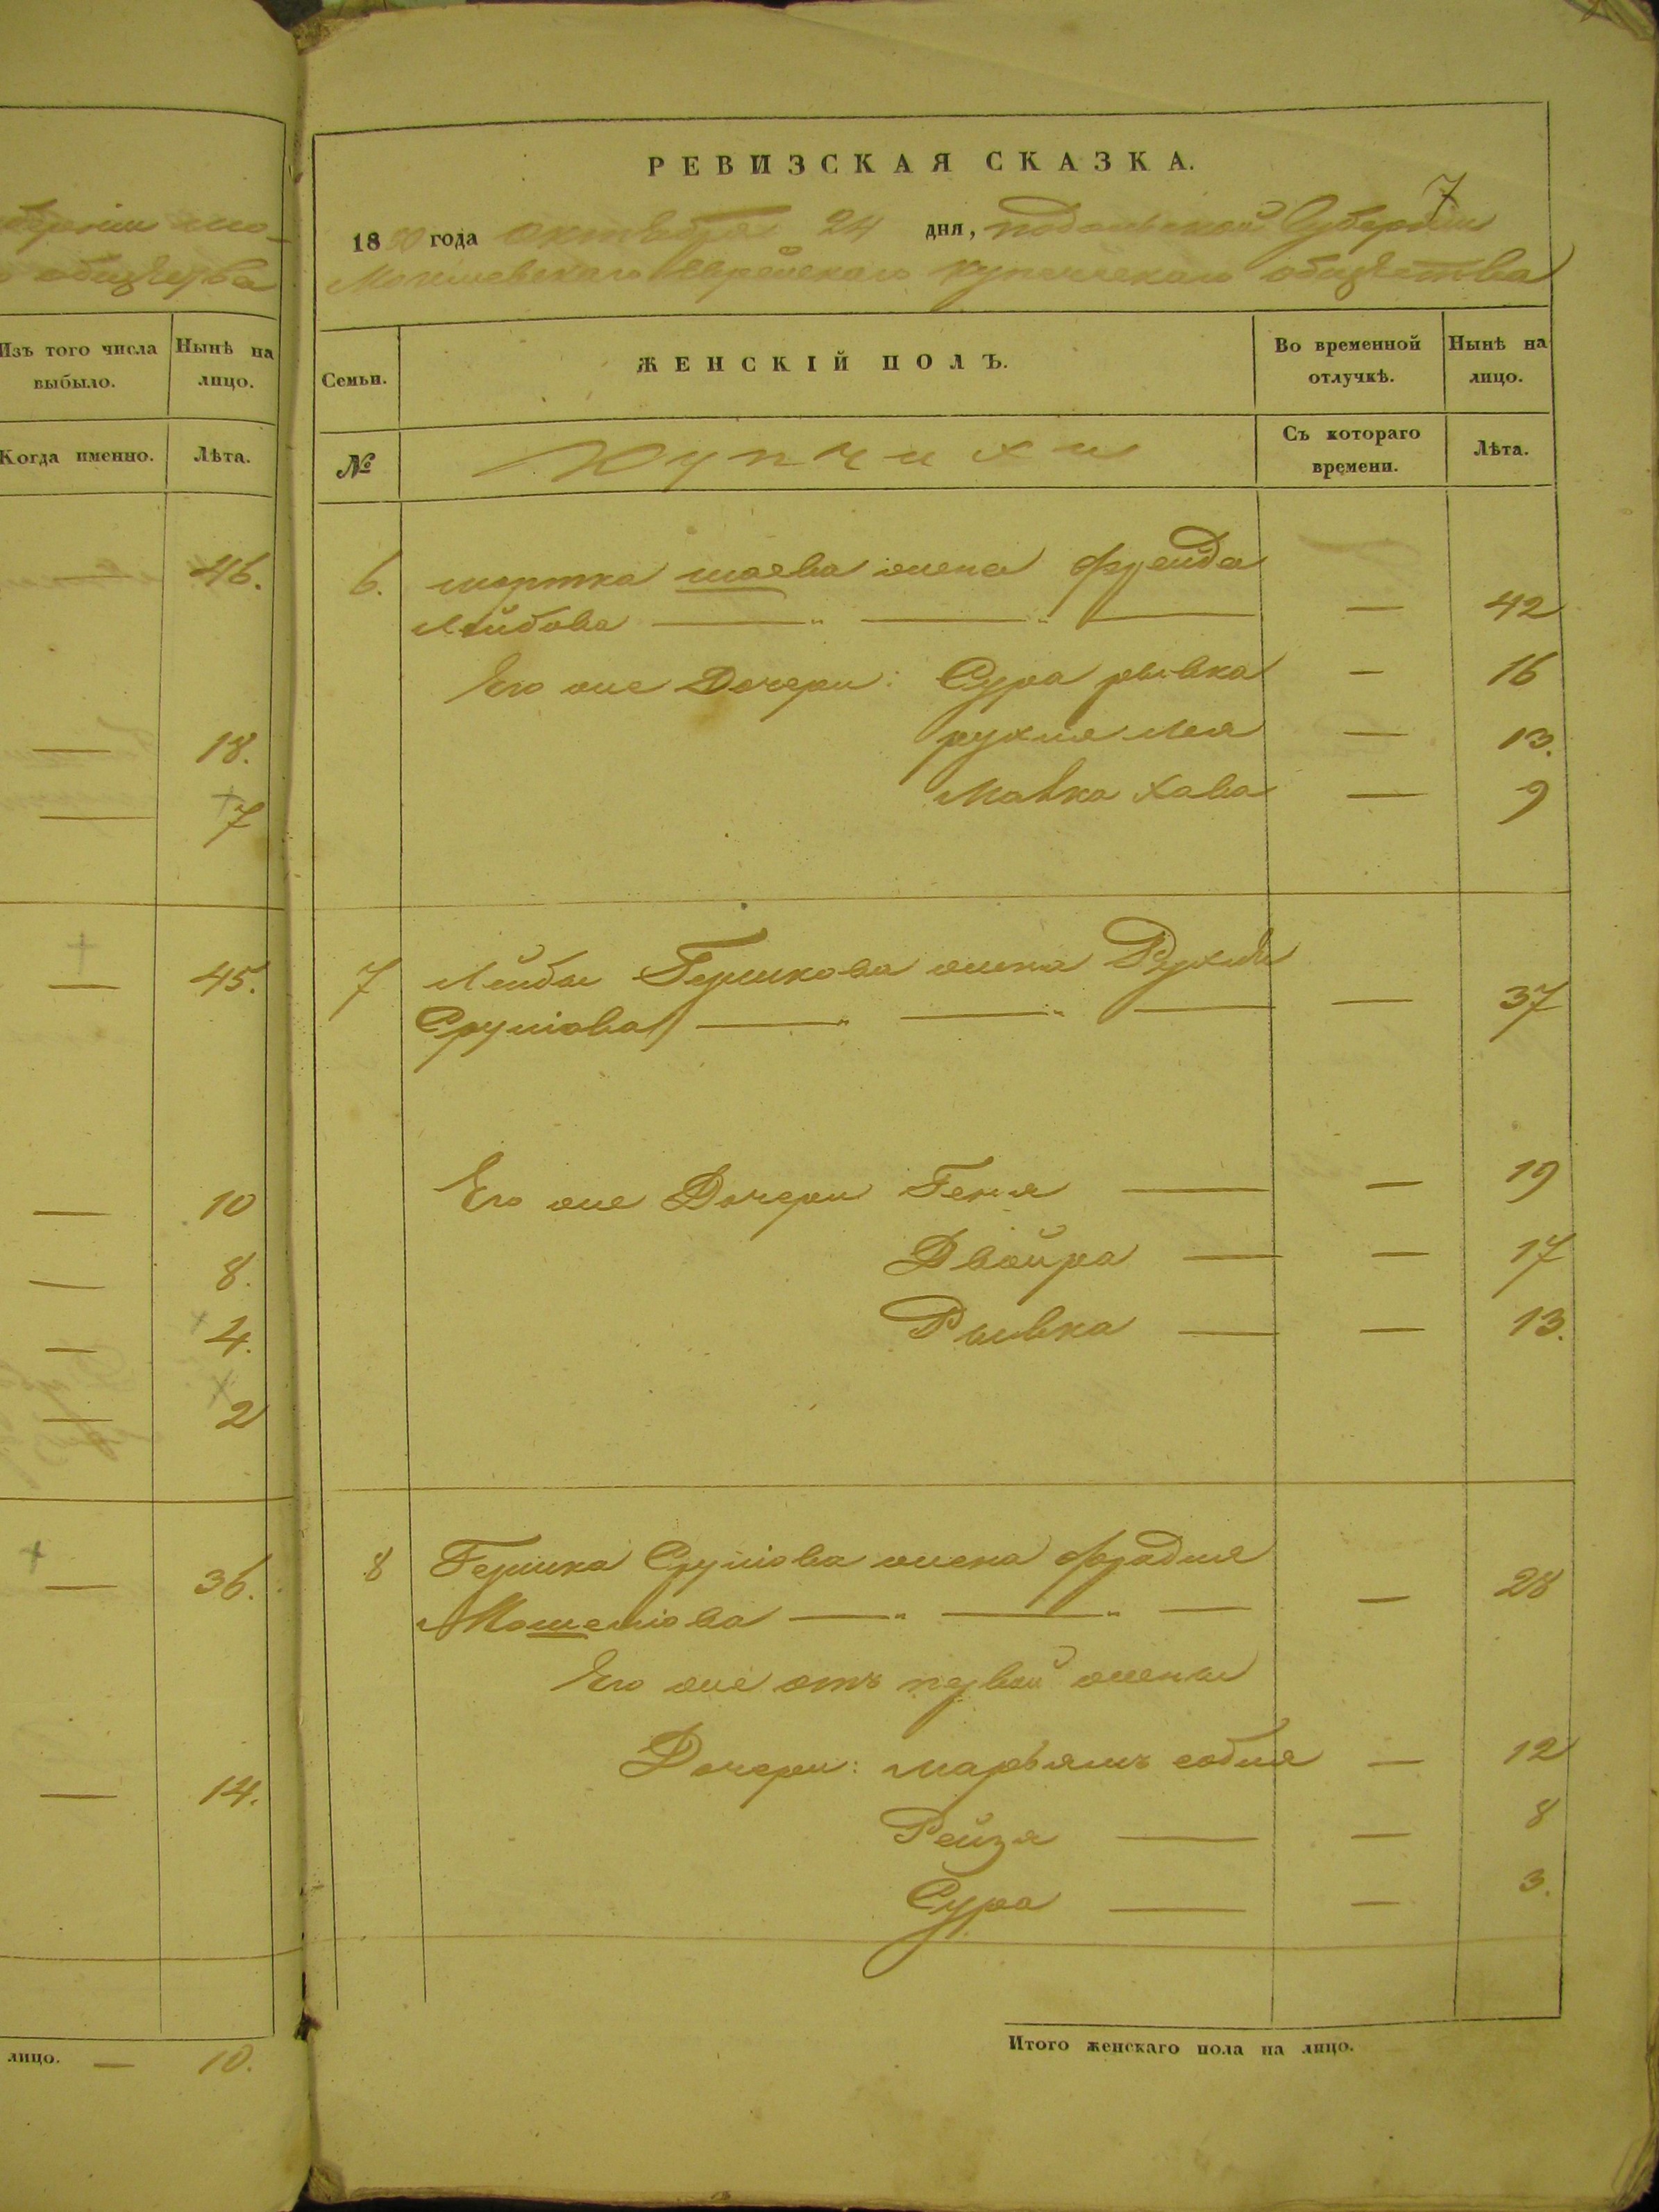 общества
Изъ того числа выбыло.
Нынѣ на лицо.
Когда именно.
Лѣта.
46.
— 18.
— 7
— 45.
— 10
— 8.
— 4.
— 2
— 36.
— 14.
лицо. — 10.
7
РЕВИЗСКАЯ СКАЗКА.
1850 года октября 24 дня, подольской Губерніи
Могилевскаго Еврейскаго купеческаго общества
Семьи.
ЖЕНСКІЙ ПОЛЪ.
Во временной отлучкѣ.
Нынѣ на лицо.
№
Купчихи
Съ котораго времени.
Лѣта.
6. мортка шаева жена фрейда
Лейбова — „ — „ — — 42
Его же Дочери: Сура рывка — 16
рухля лея — 13.
Малка хава — 9
7 Лейбы Гершкова жена Рухля
Срулiова — „ — „ — — 37
Его же Дочери Геня — — 19
Двойра — — 17
Рывка — — 13.
8 Гершка Срулiова жена фрадля
Мошелiова — „ — „ — — 28
Его же отъ первой жены
Дочери: марьямъ собля — 12
Рейзя — — 8
Сура — — 3.
Итого женскаго пола на лицо.